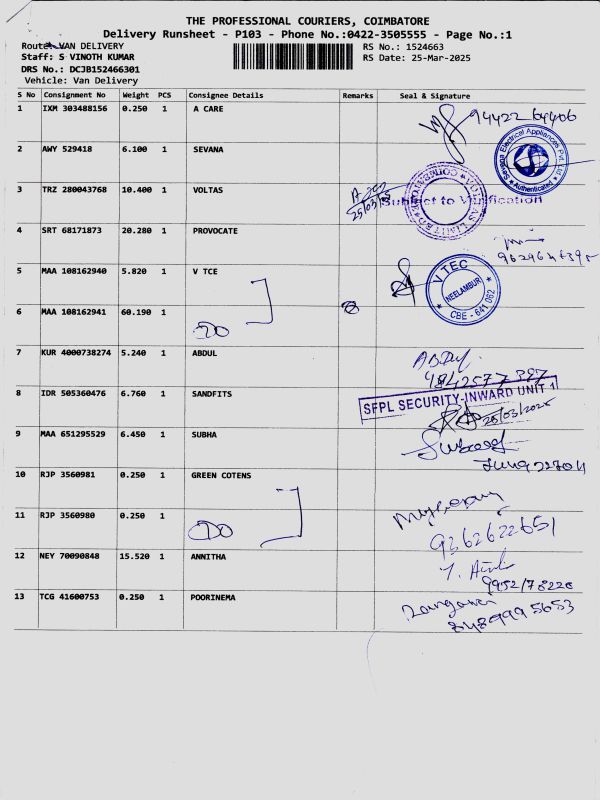 THE PROFESSIONAL COURIERS, COIMBATORE
Delivery Runsheet - P103 - Phone No.:0422-3505555 - Page No.:1
Route: VAN DELIVERY
RS No.: 1524663
Staff: S VINOTH KUMAR
RS Date: 25-Mar-2025
DRS No.: DCJB152466301
Vehicle: Van Delivery
S No Consignment No Weight PCS Consignee Details Remarks Seal & Signature
1 IXM 303488156 0.250 1 A CARE
94422 64406
2 AWY 529418 6.100 1 SEVANA
Sevana Electrical Appliances Pvt. Ltd
Authenticated
3 TRZ 280043768 10.400 1 VOLTAS
25/03/25
Subject to Verification
VOLTAS LIMITED COIMBATORE
4 SRT 68171873 20.280 1 PROVOCATE
5 MAA 108162940 5.820 1 V TCE
V TEC
NEELAMBUR
CBE - 641 062
6 MAA 108162941 60.190 1
DO
7 KUR 4000738274 5.240 1 ABDUL
ABDUL
8 IDR 505360476 6.760 1 SANDFITS
SFPL SECURITY-INWARD UNIT 1
25/03/2025
9 MAA 651295529 6.450 1 SUBHA
10 RJP 3560981 0.250 1 GREEN COTENS
11 RJP 3560980 0.250 1
DO
9362622651
12 NEY 70090848 15.520 1 ANNITHA
13 TCG 41600753 0.250 1 POORINEMA